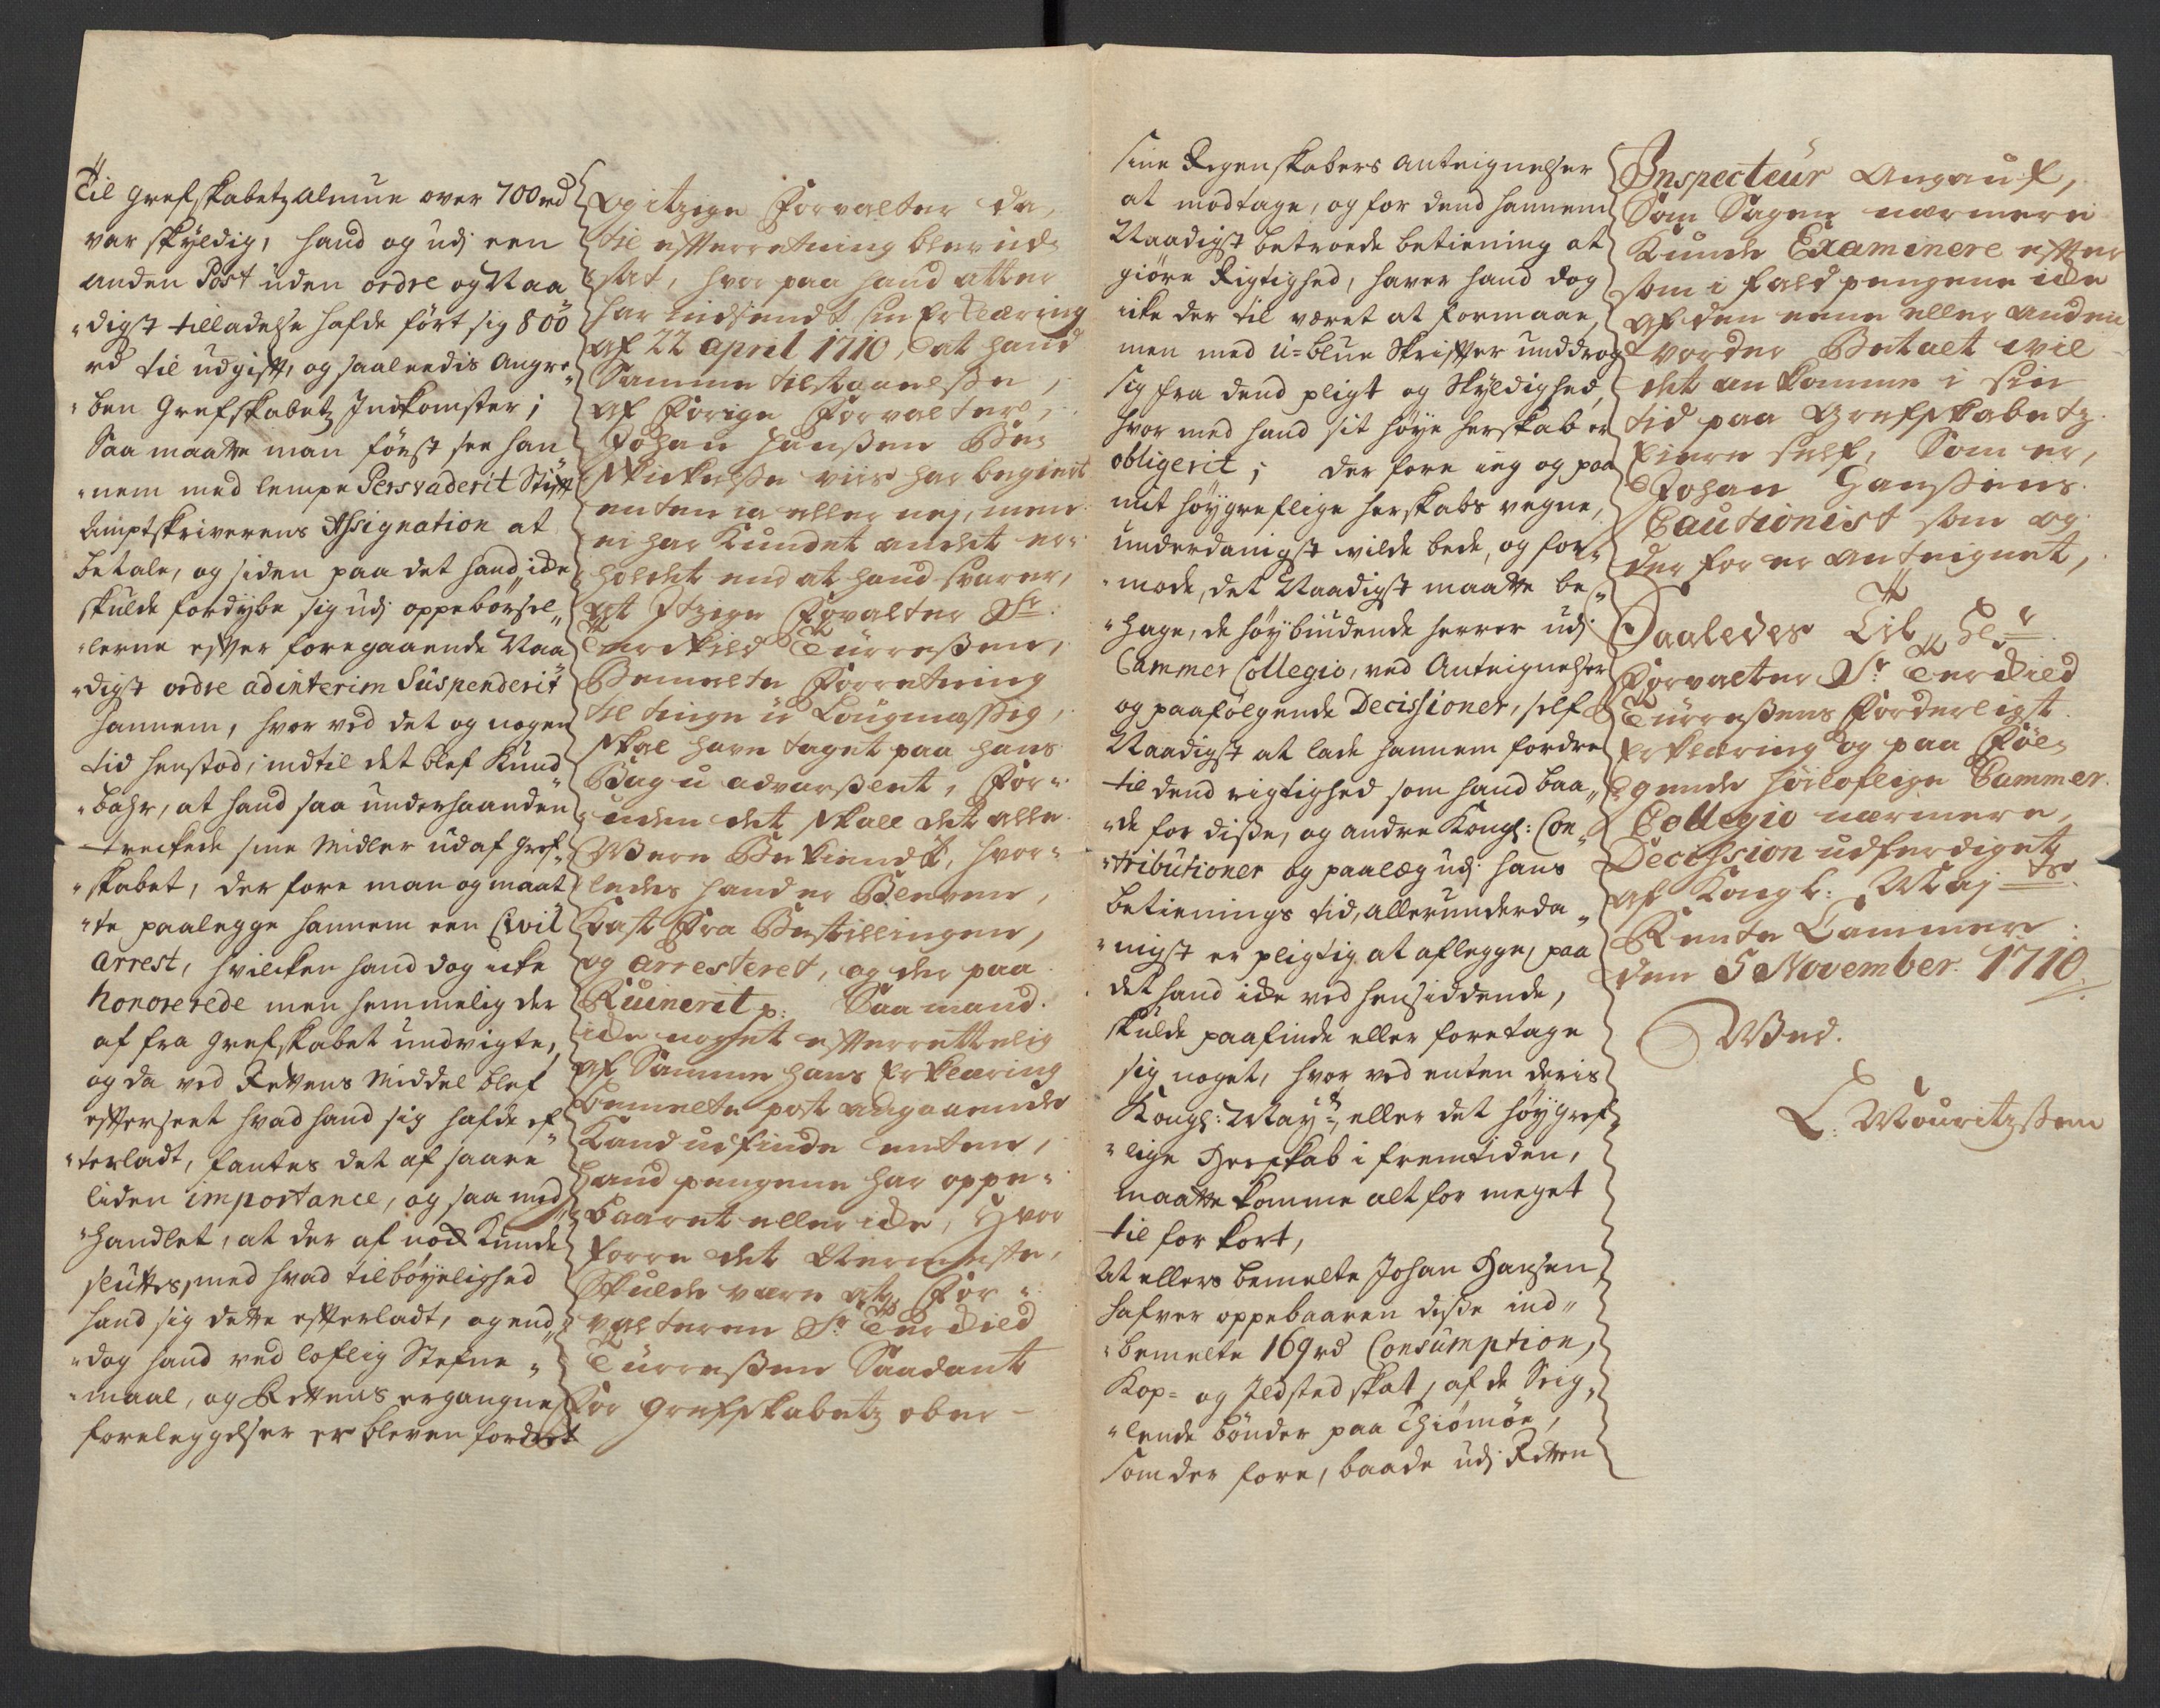 Til Grefskabetz Almue over 700 rd
var skyldig, hand og udj een
anden Post uden ordre og Naa
"digst tilladelse hafde fört sig 800
rd til udgift, og saaleedis Angre"
"ben Grefskabetz Indkomster;
Saa maatte man först see han"
"nem med lempe Persvaderit Stift
Amptskriverens Assignation at
betale, og siden paa det hand icke
skulde fordybe sig udj oppebörsel"
"lerne efter foregaaende Naa
"digst ordre ad interim Suspenderit
hannem, hvor ved det og nogen
tid henstod, indtil det blef Kund"
"bahr, at hand saa underhaanden
treckede sine Midler ud af Gref"
"skabet, der fore man og maat
"te paalegge hannem een Civil
Arrest, hvilcken hand dog icke
honorerede men hemmelig der
af fra Grefskabet undvigte,
og da ved Rettens Middel blef
efterseet hvad hand sig hafde ef
"terladt, fantes det af saare
liden importance, og saa med
"handlet, at der af nock kunde
sluttes, med hvad tilböyelighed
hand sig dette efterladt, og end"
"dog hand ved loflig Stefne"
"maal, og Rettens ergangne
foreleggelser er bleven fordret
og itzige Forvalter der
til efterretning blev ud
sat, hvor paa hand atter
har indsendt sin Erklæring
af 22 April 1710, at hand
Samme tilstaaelsse,
af Forige Forvalter,
Johan Hanssen Be=
skickelsse viis har begiert
enten ia eller nej, men
ei har kundet andet er=
holdet end at hand svarer,
at Itzige Forvalter Sr:
Terckild Türressen,
Bemelte Forretning
til tinge u Lougmæssig,
skal have taget paa hans
Bag u advarsslet, For=
uden det skall det alle
Være Bekiendt, hvor=
ledes hand er Bleven,
Kast Fra Bestillingen,
og Arresteret, og der paa
Ruinerit p: Saa mand
icke noget efterrettelig
af Samme hans Erklæring
bemelte post angaaende
Kand udfinde enten,
hand pengene har oppe=
baaret eller icke, Hvor
forre det Nermeste,
Skulde være at For=
valteren Sr Terckild
Türressen Saadant
for Grefskabetz ober=
sine Regenskabers Anteignelser
at modtage, og for dend hannem
Naadigst betroede betiening at
giöre Rigtighed, haver hand dog
icke der til været at formaae,
men med u=blue Skrifter unddrog
sig fra dend pligt og skyldighed,
hvor med hand sit höye herskab er
obligerit; der fore ieg og paa
mit höygreflige herskabs vegne,
underdanigst wilde bede, og for"
"mode, det Naadigst maatte be"
"hage, de höybiudende herrer udj
Cammer Collegio, ved Anteignelser
og paafölgende Decissioner, self
Naadigst at lade hannem fordre
til dend rigtighed som hand baa"
"de for disse, og andre Kongl: Con"
"tributioner og paalæg udj hans
betienings tid, allerunderda"
"nigst er pligtig at aflegge, paa
det hand icke ved hensiddende,
skulde paafinde eller foretage
sig noget, hvor ved enten deris
Kongl: Mayt, eller det höygref"
"lige Herskab i fremtiden,
maatte komme alt for meget
til for kort,
At ellers bemelte Johan Hansen
hafver oppebaaren disse ind"
"bemelte 169 rd Consumption,
Kop= og Ildsted skat, af de Seig"
"lende bönder paa Thiömöe,
som der fore, baade udj Retten
Inspecteur Angauf,
Som Sagen nærmere
Kunde Examinere efter
som i fald pengene icke
af den eene eller anden
vorder Betalt wil
det an komme i sin
tid paa Grefskabetz
Eiere self, Som er,
Johan Hanssens
Cautionist som og
der for er anteignet,
Saaledes Til Hr
Forvalter Sr Terckild
Türressens Forderligst
Erklæring og paa Föl=
gende höiloflige Cammer
Collegio nærmere,
Decission udferdiget
af Kongl: Maj ts
Rente Cammer
den 5 November 1710
Ved.
L: Mouritzssen